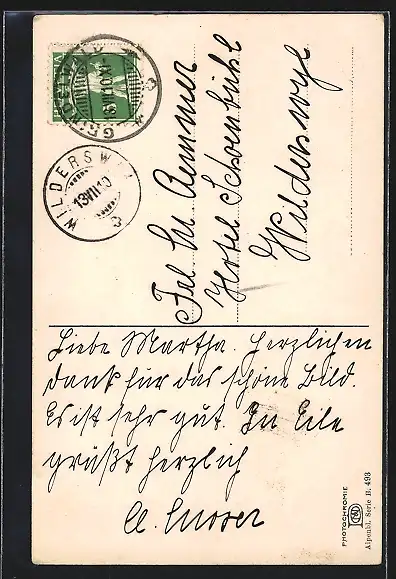 GRINDELWALD
WILDERSWIL
13 VII 10
Frl. M. Aemmer
Hotel Schönbühl
Wilderswyl
Liebe Martha. Herzlichen
dank für das schöne Bild.
Es ist sehr gut. In Eile
grüßt herzlich
PHOTOCHROMIE
Alpenbl. Serie B. 493